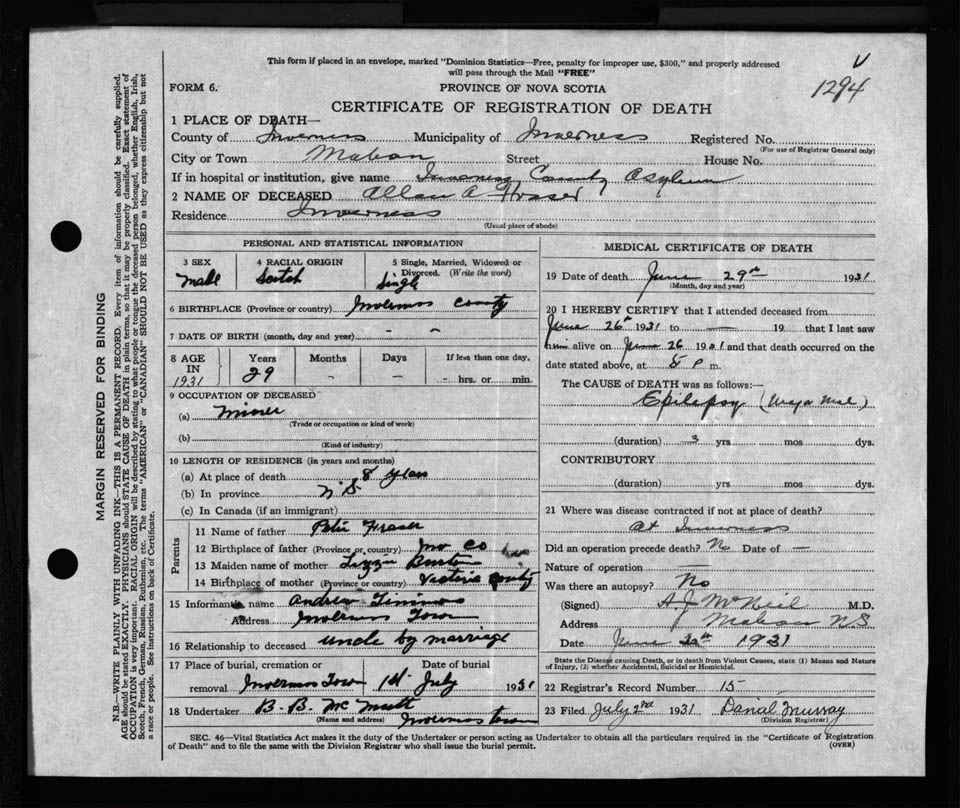 This form if placed in an envelope, marked "Dominion Statistics—Free, penalty for improper use, $300," and properly addressed
will pass through the Mail "FREE"
1294
FORM 6.
PROVINCE OF NOVA SCOTIA
CERTIFICATE OF REGISTRATION OF DEATH
1 PLACE OF DEATH—
County of Inverness Municipality of Inverness Registered No.
(For use of Registrar General only)
City or Town Mabou Street House No.
If in hospital or institution, give name Inverness County Asylum
2 NAME OF DECEASED Allan A Fraser
Residence Inverness
(Usual place of abode)
PERSONAL AND STATISTICAL INFORMATION
3 SEX
Male
4 RACIAL ORIGIN
Scotch
5 Single, Married, Widowed or
Divorced. (Write the word)
Single
6 BIRTHPLACE (Province or country) Inverness County
7 DATE OF BIRTH (month, day and year) - -
8 AGE Years Months Days If less than one day,
IN
1931 29 - - - hrs. or min.
9 OCCUPATION OF DECEASED
(a) Miner
(Trade or occupation or kind of work)
(b)
(Kind of industry)
10 LENGTH OF RESIDENCE (in years and months)
(a) At place of death 8 years
(b) In province N.S.
(c) In Canada (if an immigrant)
Parents
11 Name of father Peter Fraser
12 Birthplace of father (Province or country) Inv Co
13 Maiden name of mother Lizzie
14 Birthplace of mother (Province or country) Victoria County
15 Informant's name Andrew
Address Inverness Town
16 Relationship to deceased uncle by marriage
17 Place of burial, cremation or Date of burial
removal Inverness Town 1st July 1931
18 Undertaker B. B. Mc
(Name and address) Inverness Town
MEDICAL CERTIFICATE OF DEATH
19 Date of death June 29th 1931
(Month, day and year)
20 I HEREBY CERTIFY that I attended deceased from
June 26th 1931 to — 19 that I last saw
him alive on June 26 1931 and that death occurred on the
date stated above, at 5 P m.
The CAUSE of DEATH was as follows:—
Epilepsy
(duration) 3 yrs mos dys.
CONTRIBUTORY
(duration) yrs mos dys.
21 Where was disease contracted if not at place of death?
At Inverness
Did an operation precede death? No Date of —
Nature of operation —
Was there an autopsy? No
(Signed) A J McNeil M.D.
Address Mabou NS
Date June 30th 1931
State the Disease causing Death, or in death from Violent Causes, state (1) Means and Nature
of Injury, (2) whether Accidental, Suicidal or Homicidal.
22 Registrar's Record Number 15
23 Filed July 2nd 1931 Daniel Murray
(Division Registrar)
SEC. 46—Vital Statistics Act makes it the duty of the Undertaker or person acting as Undertaker to obtain all the particulars required in the "Certificate of Registration
of Death" and to file the same with the Division Registrar who shall issue the burial permit.
(OVER)
MARGIN RESERVED FOR BINDING
N.B.—WRITE PLAINLY WITH UNFADING INK—THIS IS A PERMANENT RECORD. Every item of information should be carefully supplied.
AGE should be stated EXACTLY. PHYSICIANS should STATE CAUSE OF DEATH in plain terms, so that it may be properly classified. Exact statement of
OCCUPATION is very important. RACIAL ORIGIN will be described by stating to what people or tongue the deceased person belonged, whether English, Irish,
Scotch, French, German, Russian, Ruthenian, etc. The terms "AMERICAN" or "CANADIAN" SHOULD NOT BE USED as they express citizenship but not
a race or people. See instructions on back of Certificate.